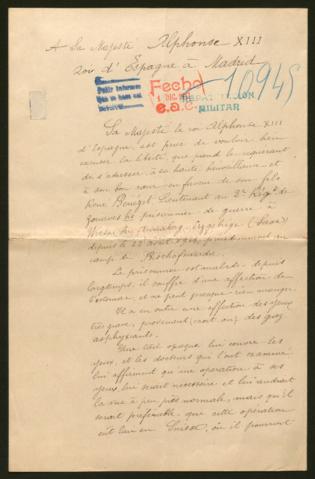 A Sa Majesté Alphonse XIII
roi d'Espagne à Madrid
Pedir informes
Fecha
10945
MILITAR
Sa Majesté le roi Alphonse XIII
d'Espagne, est prié de vouloir bien
excuser la liberté que prend le requérant
de s'adresser à sa haute bienveillance et
à son bon cœur en faveur de son fils
René Lieutenant au 2e Régt de
Zouaves prisonnier de guerre à
depuis le 22 août 1914, puis
camp de
Le prisonnier est malade depuis
longtemps, il souffre d'une affection de
l'estomac, et ne peut presque rien manger.
Il a en outre une affection des yeux
très grave, provenant (croit on) des gaz
asphyxiants.
Une taie opaque lui couvre les
yeux, et les docteurs qui l'ont examiné
lui affirment qu'une opération à ses
yeux lui serait nécessaire et lui rendrait
la vue à peu près normale, mais qu'il
serait préférable que cette opération
eût lieu en Suisse, où il pourrait